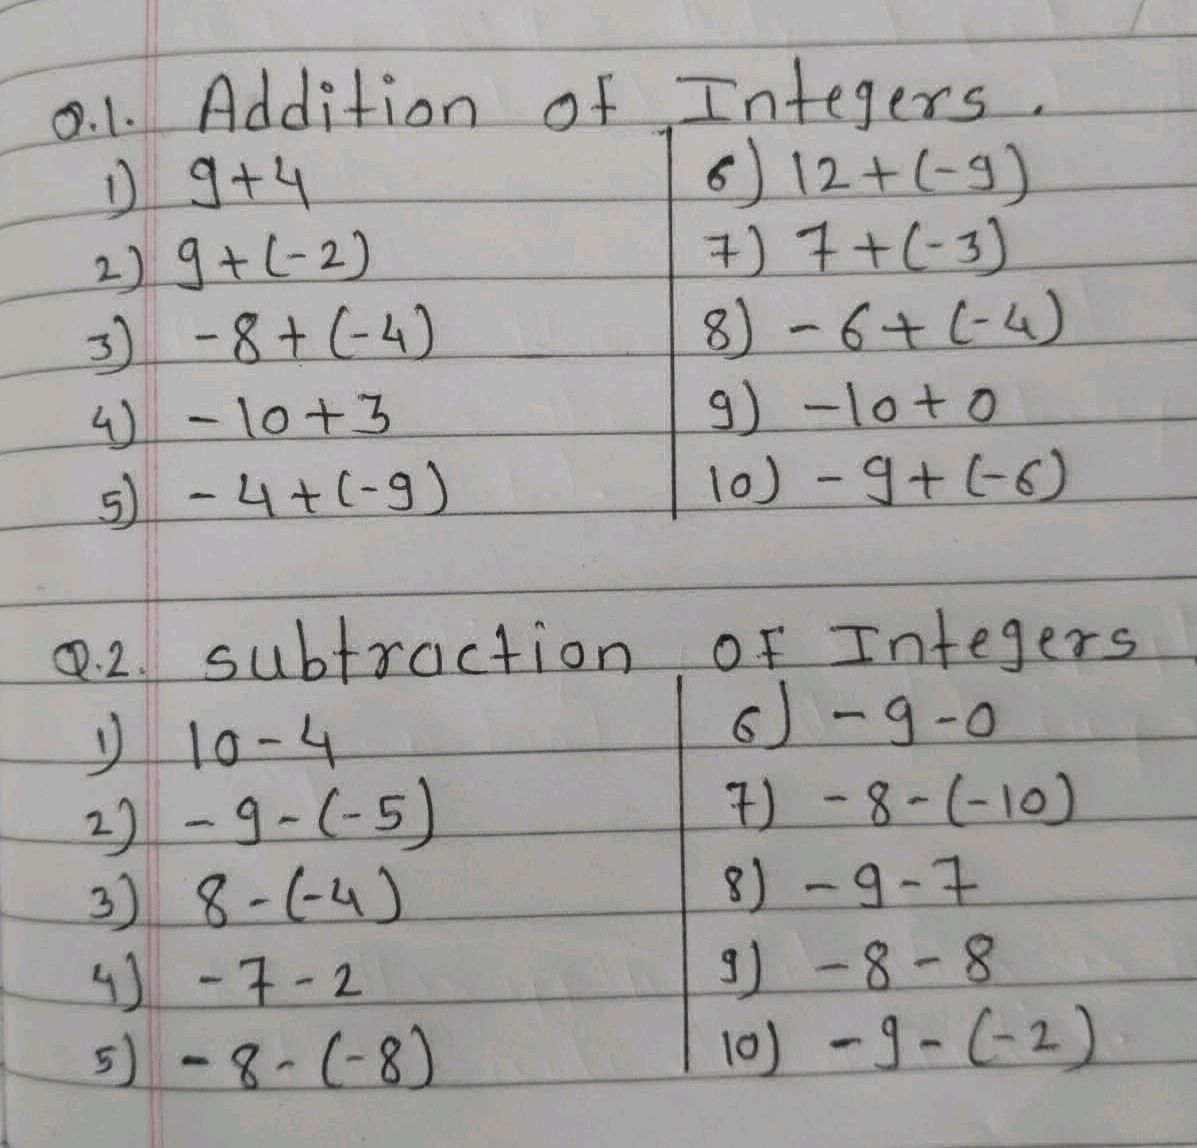 Q.1. Addition of Integers.
1) 9+4
2) 9+(-2)
3) -8+(-4)
4) -10+3
5) -4+(-9)
6) 12+(-9)
7) 7+(-3)
8) -6+(-4)
9) -10+0
10) -9+(-6)
Q.2. subtraction of Integers
1) 10-4
2) -9-(-5)
3) 8-(-4)
4) -7-2
5) -8-(-8)
6) -9-0
7) -8-(-10)
8) -9-7
9) -8-8
10) -9-(-2)